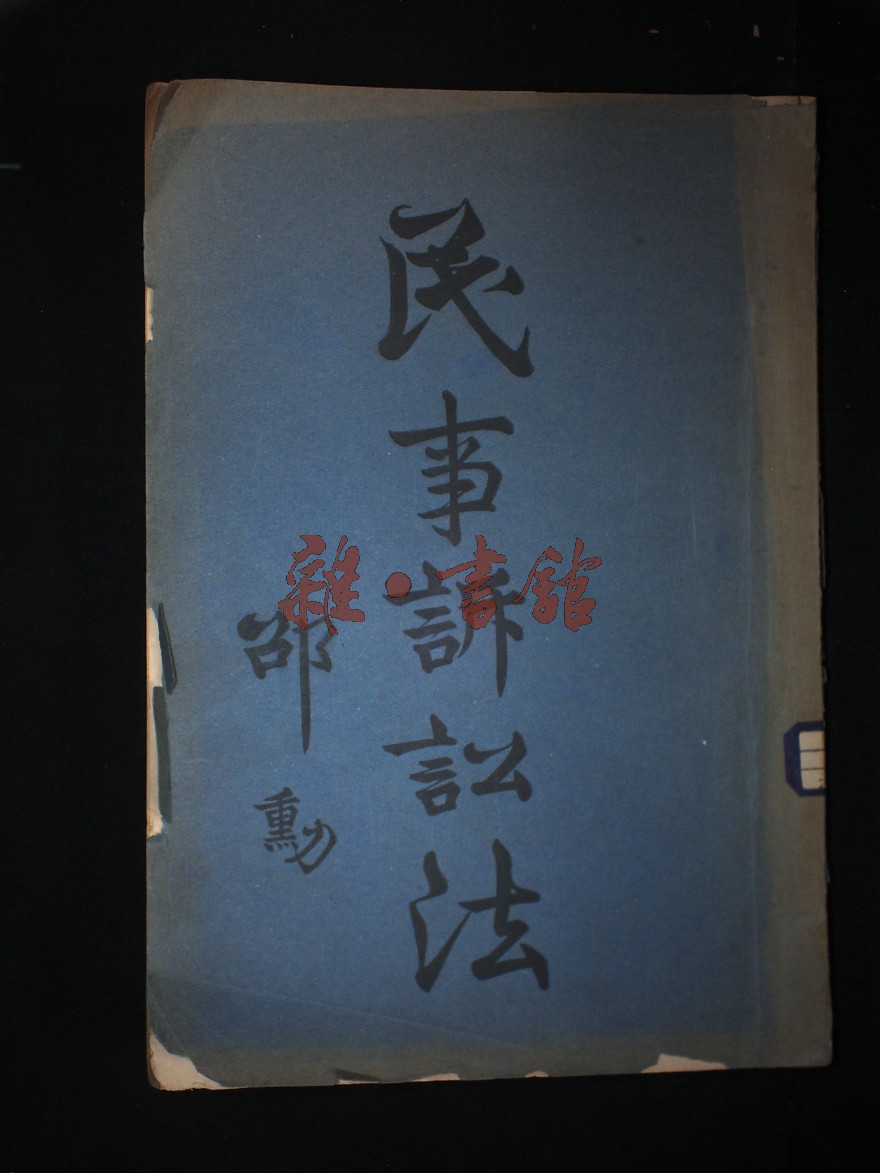 民事訴訟法
邵勳
雜·書館